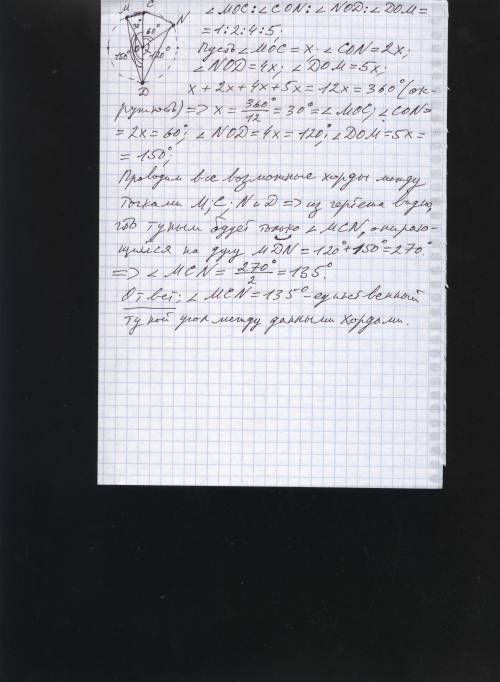 M C N
30° 60°
150° O 120°
D
∠MOC:∠CON:∠NOD:∠DOM=
=1:2:4:5.
Пусть ∠MOC=x. ∠CON=2x;
∠NOD=4x; ∠DOM=5x;
x+2x+4x+5x=12x=360° (ок-
ружность) => x=360°/12=30°=∠MOC; ∠CON=
=2x=60°; ∠NOD=4x=120°; ∠DOM=5x=
=150°;
Проводим все возможные хорды между
точками M, C, N и D => из чертежа видно,
что тупым будет только ∠MCN, опираю-
щийся на дугу MDN=120°+150°=270°.
=> ∠MCN=270°/2=135°.
Ответ: ∠MCN=135° - единственный
тупой угол между данными хордами.